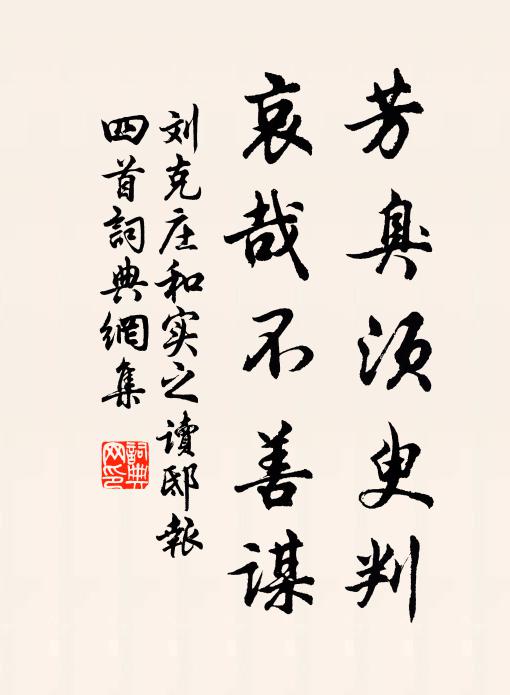 芳臭须臾判
哀哉不善谋
刘克庄和实之读邸报
四首词典网集
词典网印